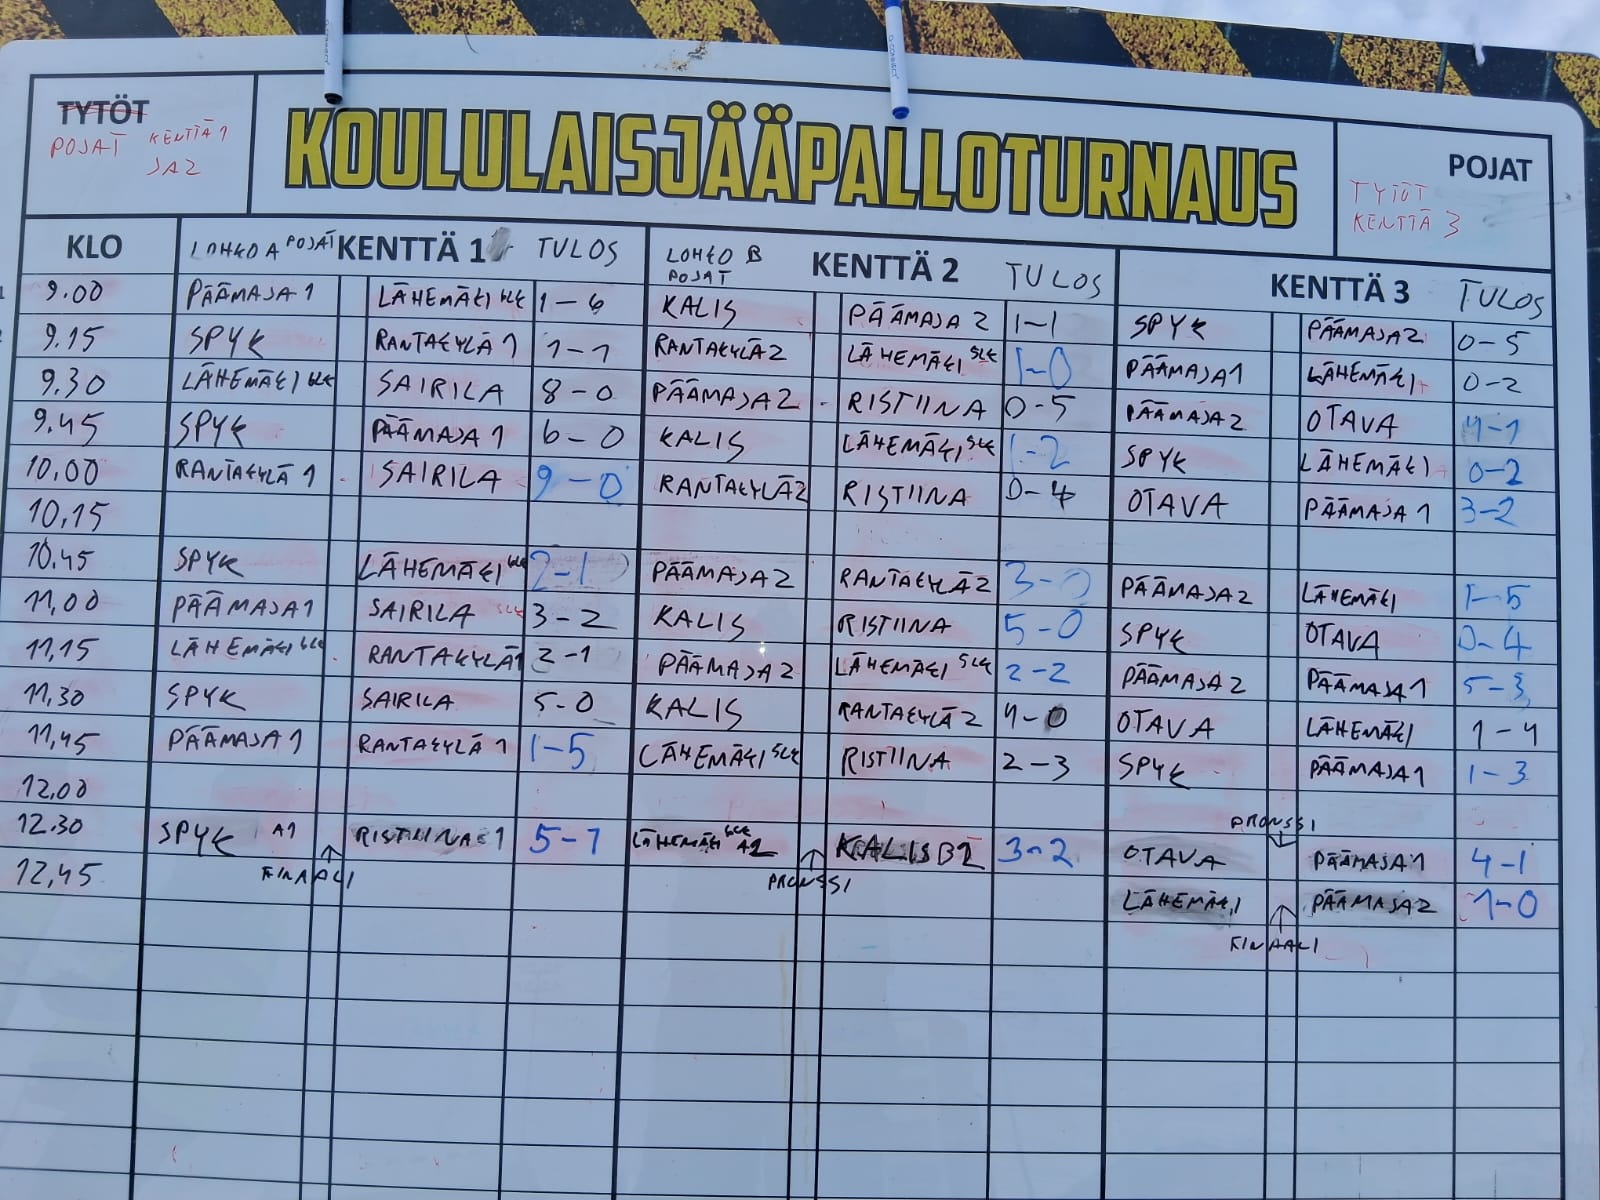 TYTÖT
POJAT KENTTÄ 1
JA 2
KOULULAISJÄÄPALLOTURNAUS
POJAT
TYTÖT
KENTTÄ 3
KLO LOHKO A POJAT KENTTÄ 1 TULOS LOHKO B POJAT KENTTÄ 2 TULOS KENTTÄ 3 TULOS
9.00 PÄÄMAJA 1 LÄHEMÄKI SLK 1-6 KALIS PÄÄMAJA 2 1-1 SPYK PÄÄMAJA 2 0-5
9.15 SPYK RANTAKYLÄ 1 1-1 RANTAKYLÄ 2 LÄHEMÄKI SLK 1-0 PÄÄMAJA 1 LÄHEMÄKI 0-2
9.30 LÄHEMÄKI SLK SAIRILA 8-0 PÄÄMAJA 2 RISTIINA 0-5 PÄÄMAJA 2 OTAVA 4-1
9.45 SPYK PÄÄMAJA 1 6-0 KALIS LÄHEMÄKI SLK 1-2 SPYK LÄHEMÄKI 0-2
10.00 RANTAKYLÄ 1 SAIRILA 9-0 RANTAKYLÄ 2 RISTIINA 0-4 OTAVA PÄÄMAJA 1 3-2
10.15
10.45 SPYK LÄHEMÄKI SLK 2-1 PÄÄMAJA 2 RANTAKYLÄ 2 3-0 PÄÄMAJA 2 LÄHEMÄKI 1-5
11.00 PÄÄMAJA 1 SAIRILA 3-2 KALIS RISTIINA 5-0 SPYK OTAVA 0-4
11.15 LÄHEMÄKI SLK RANTAKYLÄ 1 2-1 PÄÄMAJA 2 LÄHEMÄKI SLK 2-2 PÄÄMAJA 2 PÄÄMAJA 1 5-3
11.30 SPYK SAIRILA 5-0 KALIS RANTAKYLÄ 2 4-0 OTAVA LÄHEMÄKI 1-4
11.45 PÄÄMAJA 1 RANTAKYLÄ 1 1-5 LÄHEMÄKI SLK RISTIINA 2-3 SPYK PÄÄMAJA 1 1-3
12.00
PRONSSI
12.30 SPYK A1 RISTIINA 1 5-1 LÄHEMÄKI SLK A2 KALIS B2 3-2 OTAVA PÄÄMAJA 1 4-1
FINAALI PRONSSI
12.45 LÄHEMÄKI PÄÄMAJA 2 1-0
FINAALI